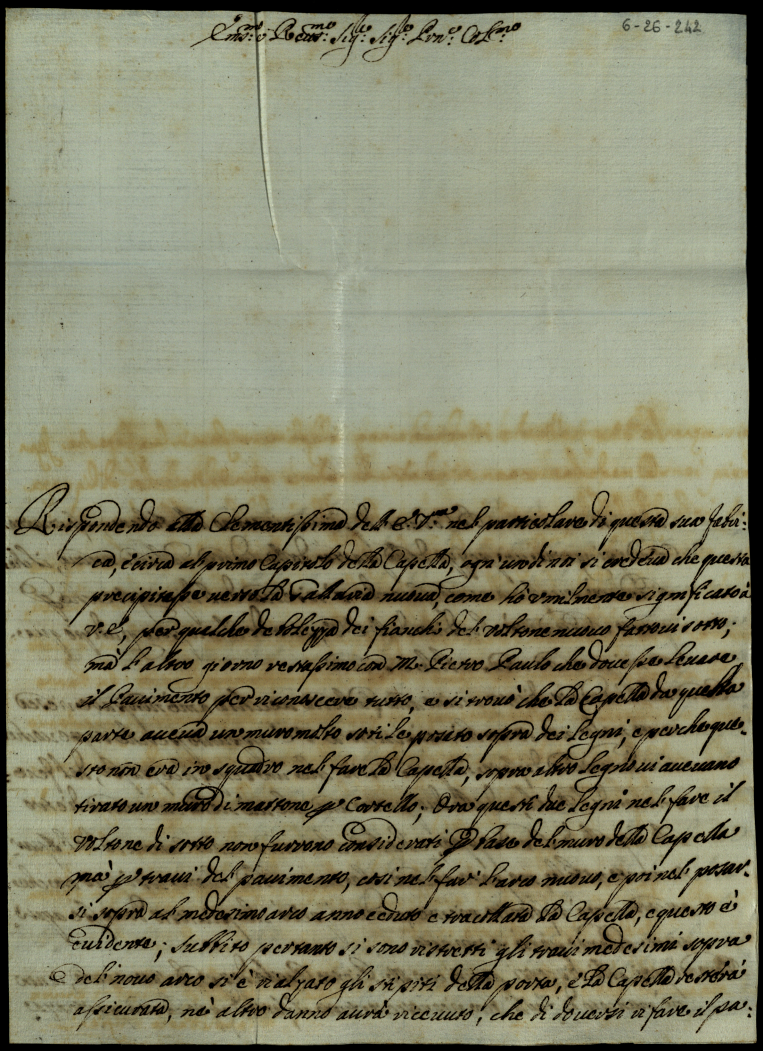 6-26-242
Em.mo e Reu.mo Sig.re Sig.re Pron.e Col.mo
Rispondendo alla Clementissima dell'E. V.ra nel particolare di questa sua fabri:
ca, e circa al primo Capitolo della Capella, ogn'uno di noi si credeua che questa
precipitasse uerso la Vallata nuoua, come hò vmilmente significato à
V. E., per qualche debolezza dei fianchi del Voltone nuouo fattoui sotto;
mà l'altro giorno restassimo con M. Pietro Paulo che douesse leuare
il Pauimento per riconoscere tutto, e si trouò che la Capella da questa
parte aueua un muro molto sotile posato sopra dei legni, e perche que:
sto non era in squadro nel fare la Capella, sopra altro legno ui aueuano
tirato un muro di mattone p Cortello; Ora questi due legni nel fare il
Voltone di sotto non furono considerati p base del muro della Capella
mà p traui del pauimento, cosi nel far l'arco nuouo, e poi nel posar:
si sopra al medesimo arco anno ceduto e tracollata la Capella, e questo è
euidente; Subbito pertanto si sono ristretti gli traui medesimi sopra
del nouo arco si è rialzato gli stipiti della porta, e la Capella resterà
assicurata, nè altro danno aurà riceuuto, che di douersi rifare il pa: